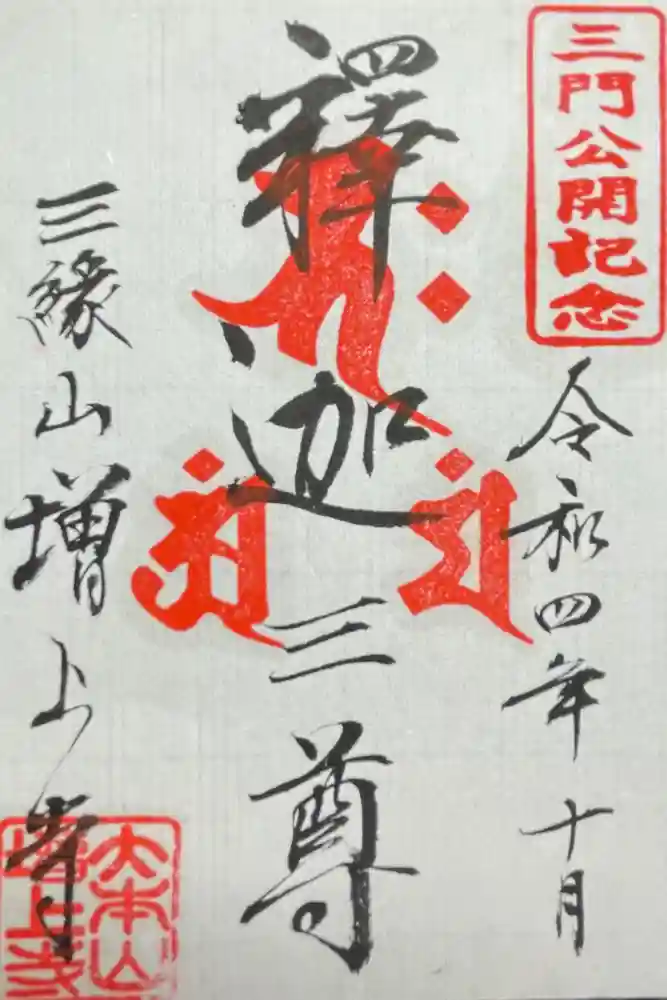 三門公開記念
令和四年十月
釋迦三尊
三縁山増上寺
大本山
増上寺